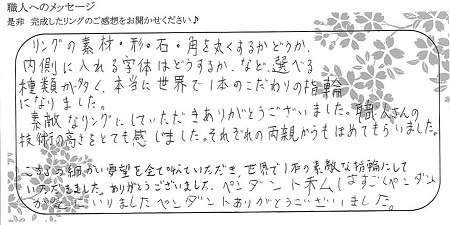 職人へのメッセージ
是非 完成したリングのご感想をお聞かせください♪
リングの素材・形・石・角を丸くするかどうか、
内側に入れる字体はどうするか、など、選べる
種類が多く、本当に世界で1本のこだわりの指輪
になりました。
素敵なリングにしていただきありがとうございました。職人さんの
技術の高さをとても感じました。それぞれの両親からもほめてもらいました。
こちらの細かい要望を全て叶えていただき、世界で1本の素敵な指輪にして
いただきました。ありがとうございました。ペンダントも私はすごくペンダント
が気にいりましたペンダントありがとうございました。